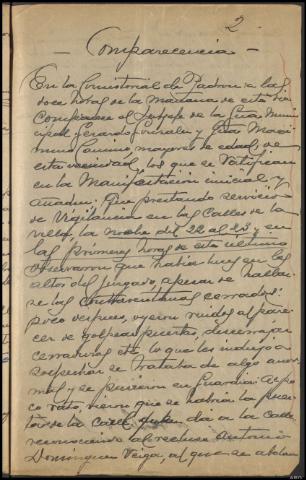 2
- Comparecencia -
En la Consistorial de Padron a las
doce horas de la mañana de este dia
Comparece el Subjefe de la Guar. Muni
cipal Gerardo y
mino mayores de edad, de
esta vecindad, los que se ratifican
en la Manifestación inicial, y
añaden: Que prestando servicios
de Vigilancia en las Calles de la
villa la noche del 22 al 23, y en
las primeras horas de este ultimo
observaron que habia luz en los
altos del juzgado, apesar de hallar
se las contraventanas cerradas:
poco despues, oyeron ruidos al pare
cer de golpear puertas, descerrajar
cerraduras etc, lo que les indujo a
sospechar se trataba de algo anor
mal y se pusieron en guardia. Al po
co rato, vieron que se habria la puer
ta de la que da a la calle
reconociendo al recluso Antonio
Dominguez Veiga, al que se abalan